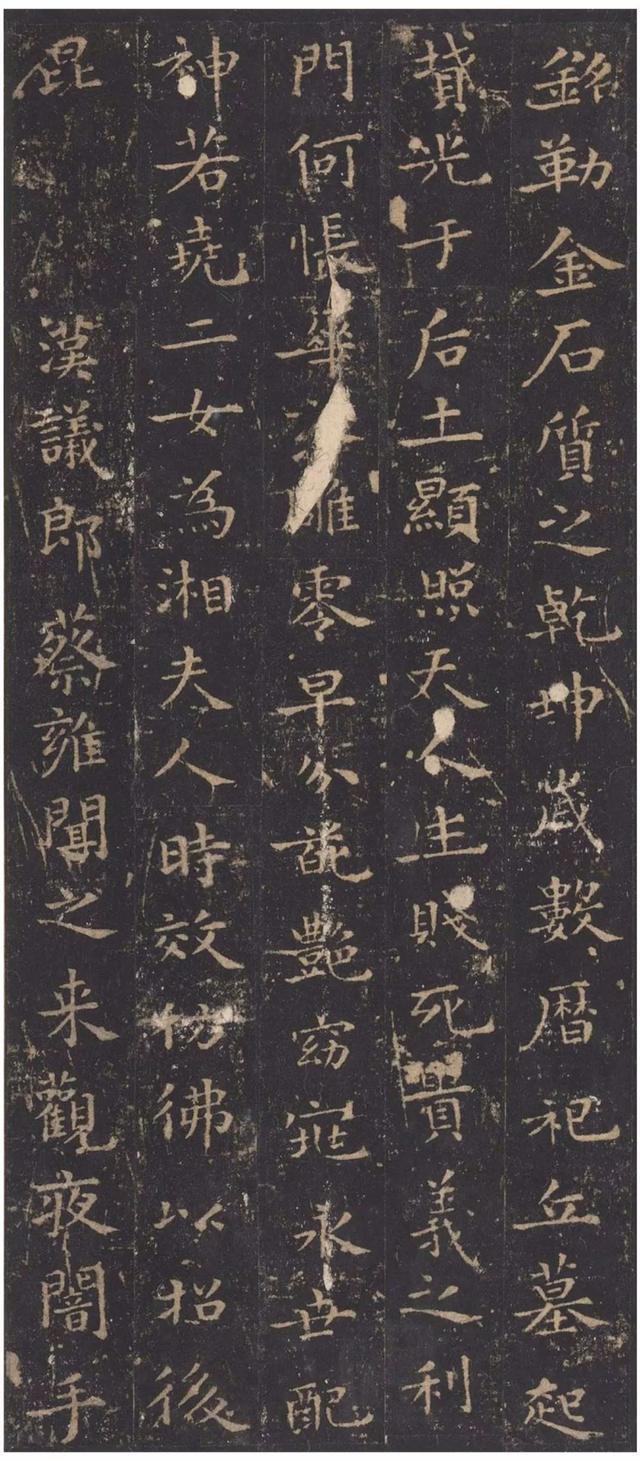 銘勒金石質之乾坤歲數曆祀丘墓起
墳光于后土顯照天人生賤死貴義之利
門何悵華雕零早分葩艷窈窕永世配
神若堯二女為湘夫人時效仿彿以招後
昆 漢議郎蔡雍聞之来觀夜闇手